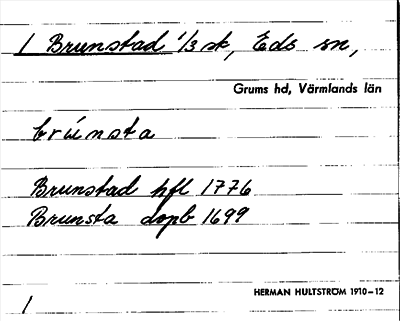 1 Brunstad 1/3 sk, Eds sn,
Grums hd, Värmlands län
brúnsta
Brunstad hfl 1776
Brunsta dopb 1699
HERMAN HULTSTRÖM 1910–12
1